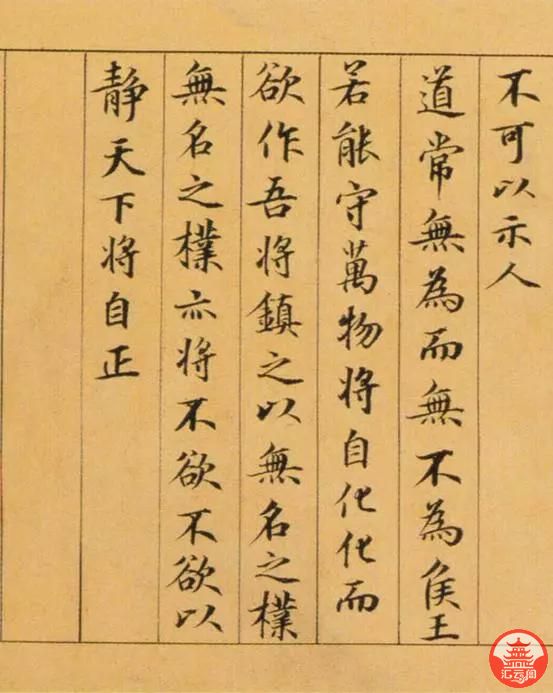 不可以示人
道常無為而無不為侯王
若能守萬物将自化化而
欲作吾将鎮之以無名之樸
無名之樸亦将不欲不欲以
靜天下将自正
汇云阁